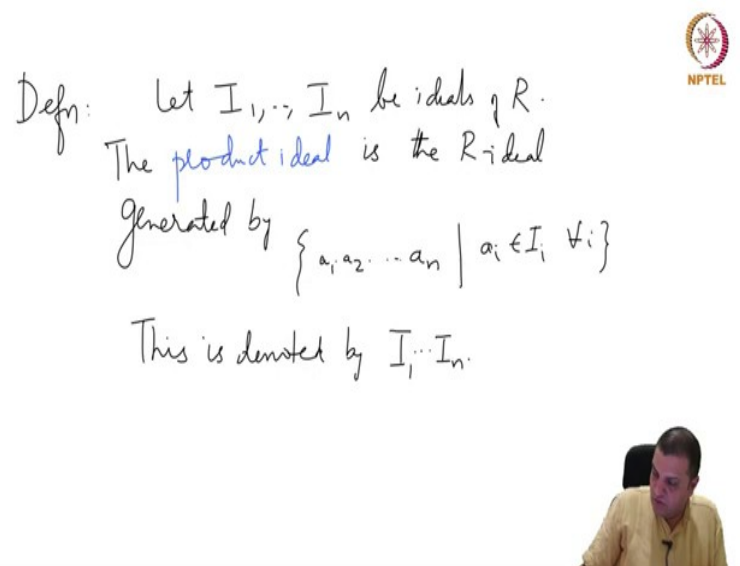 NPTEL
Defn: Let I₁,.., Iₙ be ideals of R.
The product ideal is the R-ideal
generated by
{a₁a₂...aₙ | aᵢ ∈ Iᵢ ∀i}
This is denoted by I₁...Iₙ.